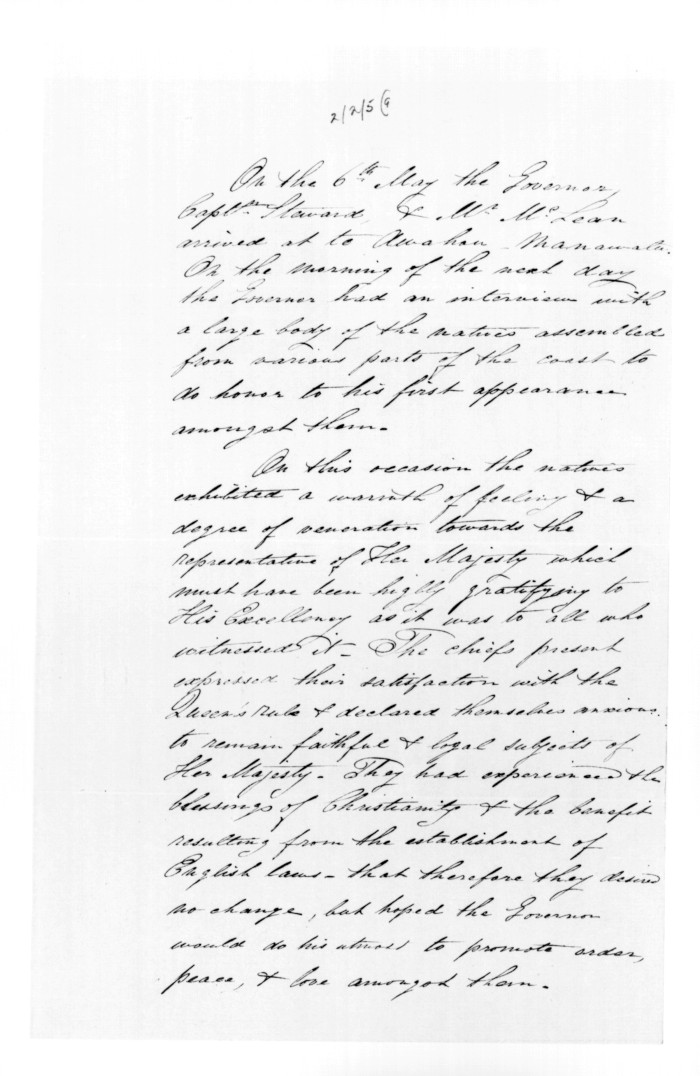 2/2/5(9
On the 6th May the Governor,
Captn Steward, & Mr McLean
arrived at te Awahou Manawatu.
On the morning of the next day
the Governor had an interview with
a large body of the natives assembled
from various parts of the coast to
do honor to his first appearance
amongst them.
On this occasion the natives
exhibited a warmth of feeling & a
degree of veneration towards the
representative of Her Majesty which
must have been highly gratifying to
His Excellency as it was to all who
witnessed it - The chiefs present
expressed their satisfaction with the
Queen's rule & declared themselves anxious
to remain faithful & loyal subjects of
Her Majesty - They had experienced the
blessings of Christianity & the benefit
resulting from the establishment of
English laws - that therefore they desired
no change, but hoped the Governor
would do his utmost to promote order,
peace, & love amongst them.